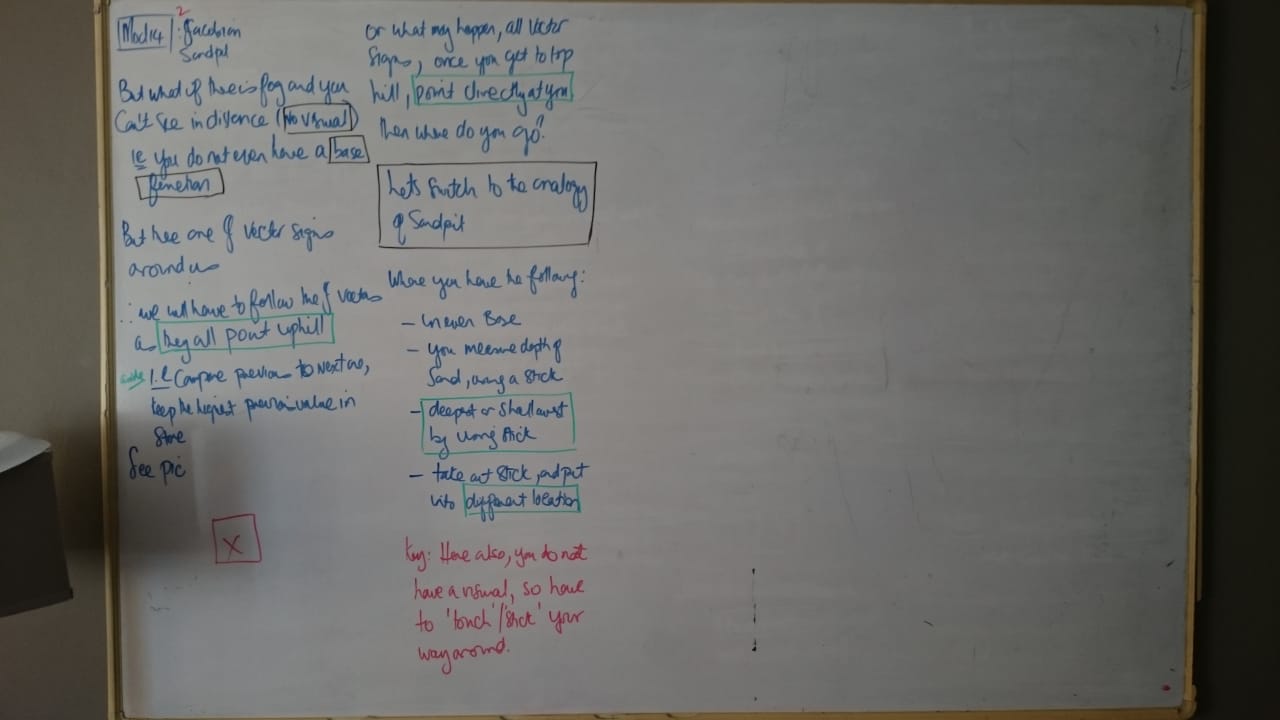 2
Mod14 : Jacobian
Sandpit
But what if there is fog and you
Can't see in distance (No visual)
ie you do not even have a base
function
But hee one of vector signs
around us
∴ we will have to follow the of vectors
as they all point uphill
i.e Compare previous to next one,
keep the highest previous value in
store
See pic
X
Or what may happen, all vector
signs, once you get to top
hill, point directly at you
Then where do you go?
Lets switch to the analogy
of Sandpit
Where you have the following:
- uneven Base
- you measure depth of
Sand, using a stick
- deepest or shallowest
by using stick
- take out stick, and put
into different location
Key: Here also, you do not
have a visual, so have
to 'touch'/'stick' your
way around.